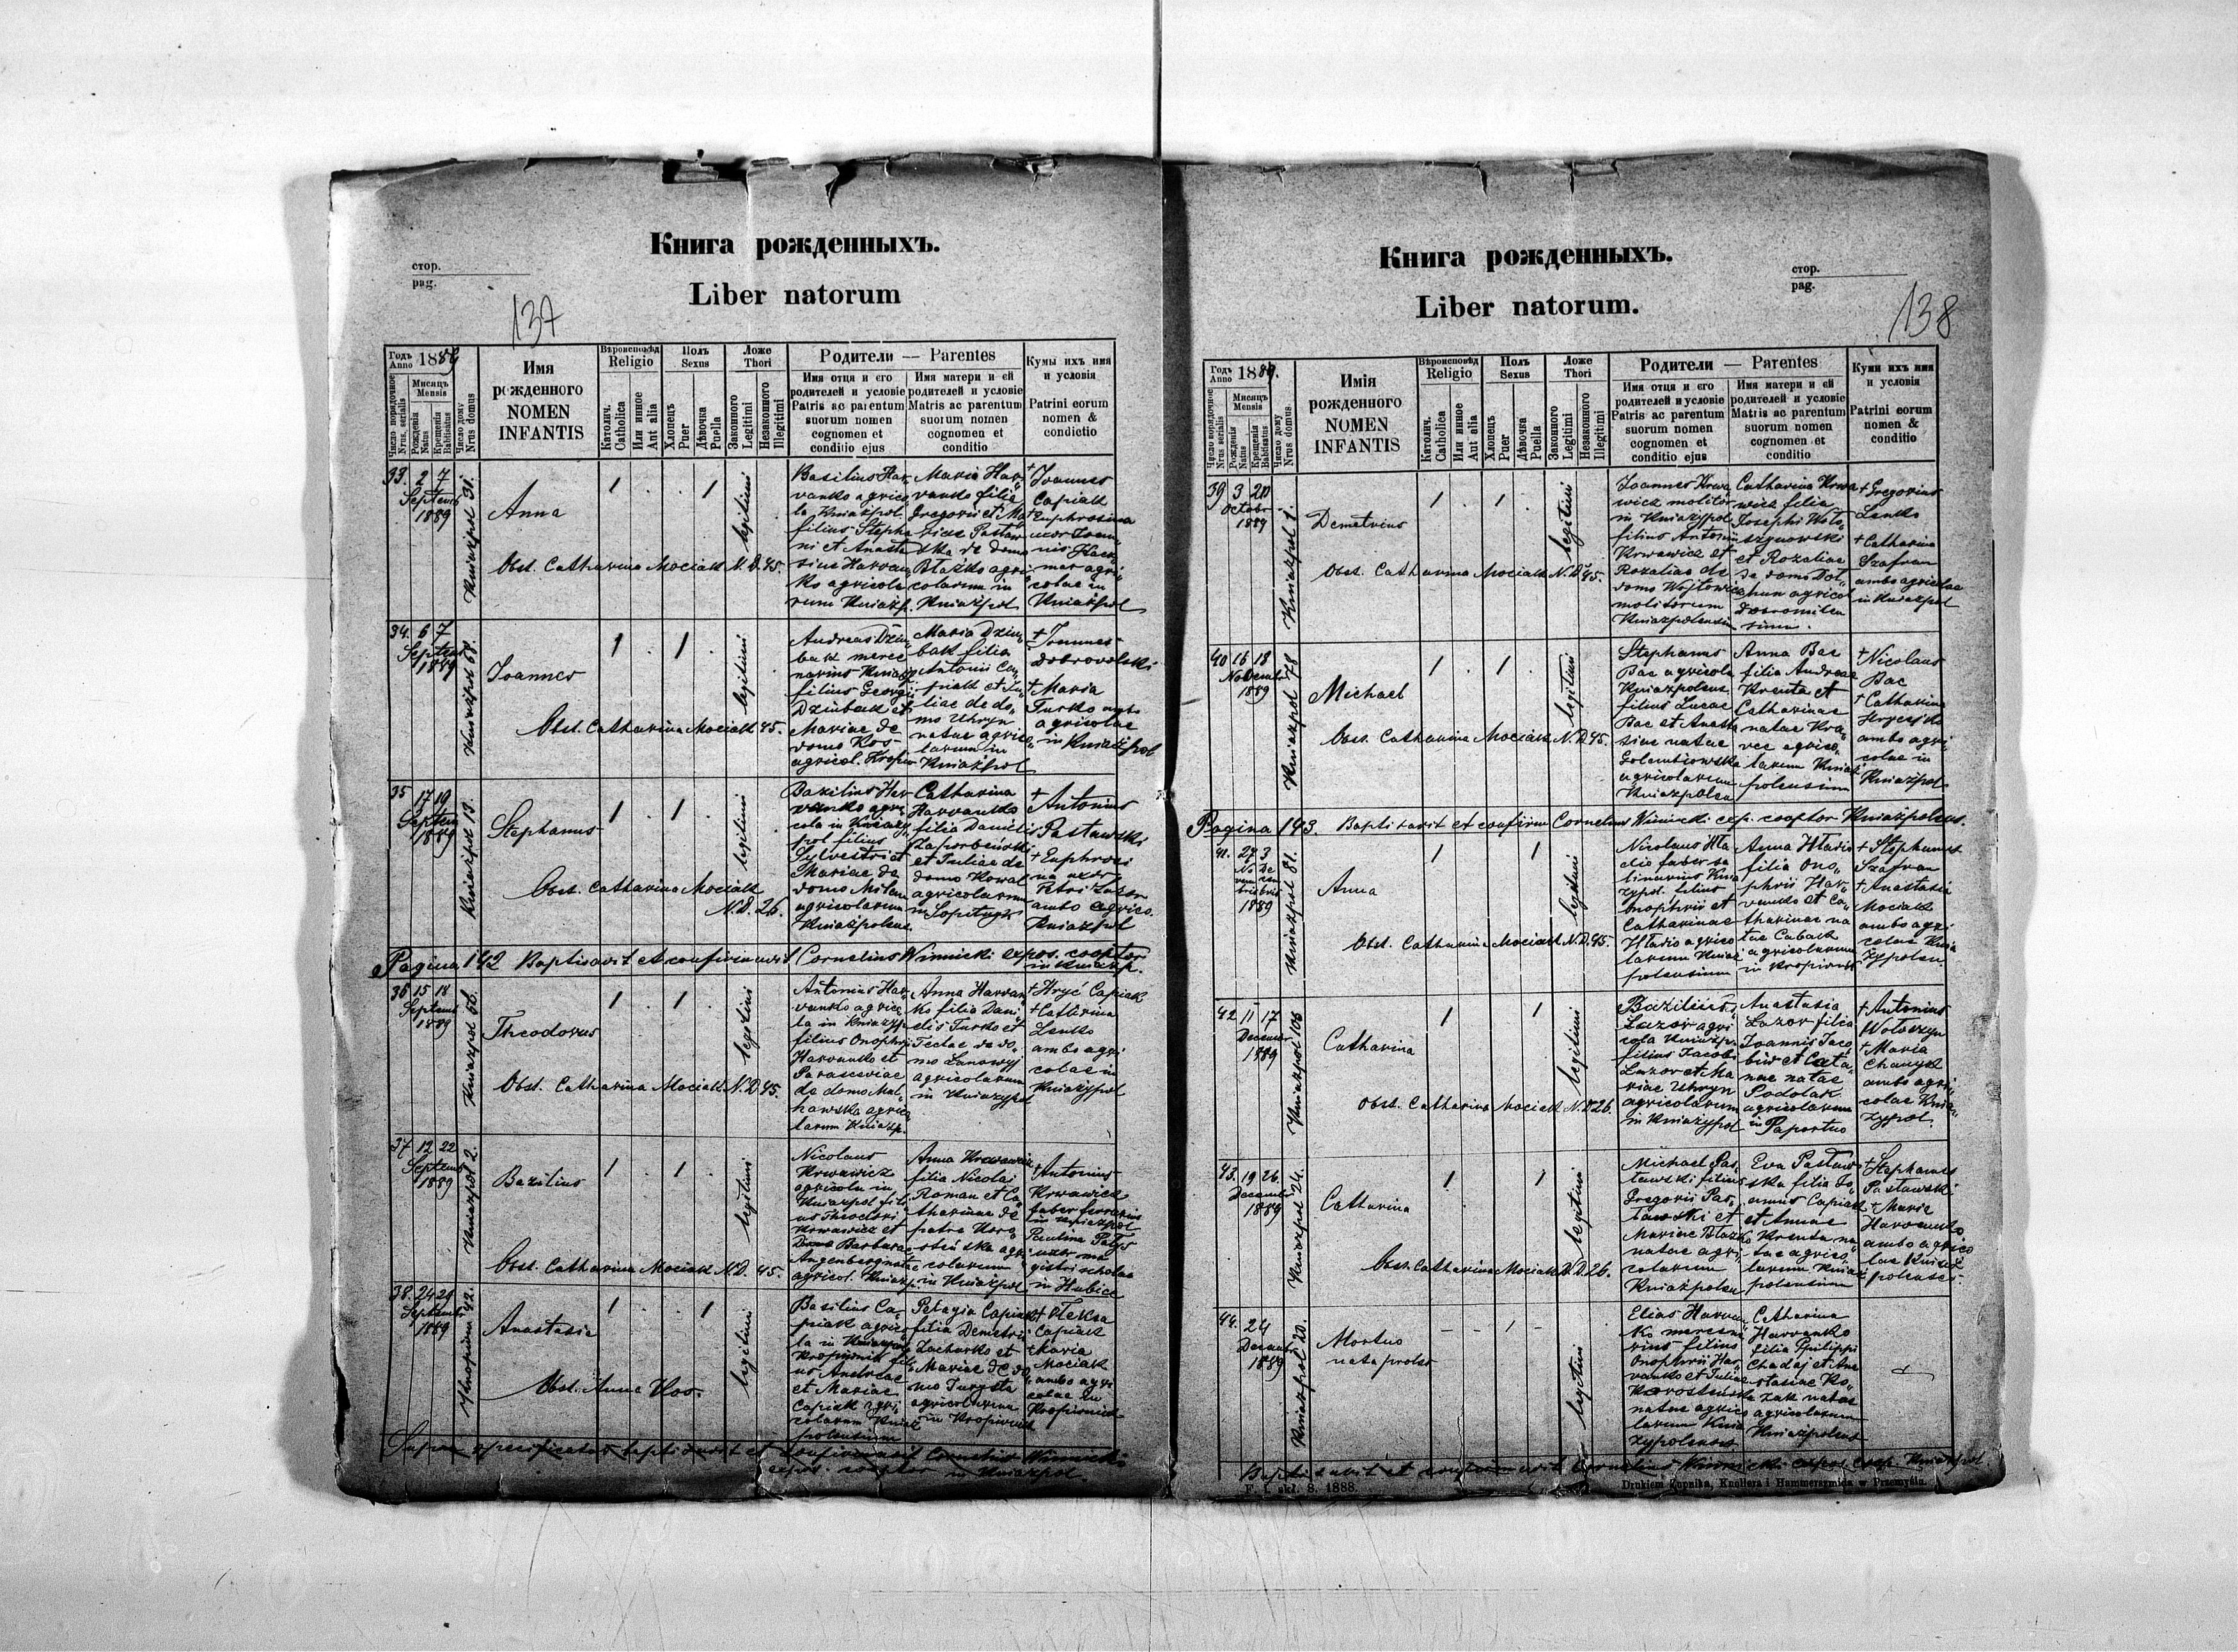 Книга рожденныхъ.
стор.
pag.
Liber natorum
137
Годъ Anno 1889
Мѣсяцъ Mensis
Число порядочное Nrus. serialis
Рожденія Natus
Крещенія Babtisatus
Число дому Nrus domus
Имя
рожденного
NOMEN
INFANTIS
Вѣроисповѣд
Religio
Католич. Catholica
Или инное Aut alia
Полъ
Sexus
Хлопецъ Puer
Дѣвочка Puella
Ложе
Thori
Законного Legitimi
Незаконного Illegitimi
Родители — Parentes
Имя отца и его
родителей и условіе
Patris ac parentum
suorum nomen
cognomen et
conditio ejus
Имя матери и ей
родителей и условіе
Matris ac parentum
suorum nomen
cognomen et
conditio
Кумы ихъ имя
и условія
Patrini eorum
nomen &
condictio
33. 2 7
Septemb
1889
Kniażpol 31.
Anna
legitimi
Obst. Catharina Mociak N.D. 45.
Basilius Har
vanko agrico
la Kniażpol
filius Stepha
ni et Anasta
siae Harvan
ko agricola
rum Kniażp.
Maria Har
vanko filia
Gregorii et Ma
riae Pastaw
ska de domo
Błażko agri
colarum in
Kniażpol
+ Joannes
Capiak
+ Euphrosina
uxor Joan
nis
agri
colae in
Kniażpol
34. 6 7
Septemb
1889
Kniażpol 68.
Joannes
legitimi
Obst. Catharina Mociak 45.
Andreas Dziu
bak merce
narius Kniażp
filius Georgii
Dziubak et
Mariae de
domo Kos
agricol. Kropiw
Maria Dziu
bak filia
Antonii Ca
piak et Ju
liae de do
mo Uhryn
natae agrico
larum in
Kniażpol
+ Joannes
Dobrovolski
+ Maria
Turko ambo
agricolae
in Kniażpol
35 17 19
Septem
1889
Kniażpol 19.
Stephanus
legitimi
Obst. Catharina Mociak
N.D. 26.
Bazilius Har
vanko agri
cola in Kniaży
pol filius
Sylvestri et
Mariae de
domo Milan
agricolarum
Kniażpolens.
Catharina
Harvanko
filia Danielis
et Juliae de
domo Kowal
agricolarum
+ Antonius
Pastawski
+ Euphrosi
na uxor
Petri Lazor
ambo agrico.
Kniażpol
Pagina 142 Baptisavit et confirmavit Cornelius Winnicki expos. cooptor
in Kniażp.
36 15 18
Septemb
1889
Kniażpol 66.
Theodorus
legitimi
Obst. Catharina Mociak N.D. 45.
Antonius Har
vanko agrico
la in Kniażyp
filius Onophri
Harvanko et
Parasceviae
de domo Mal
hawska agrico
larum Kniażp.
Anna Harvan
ko filia Dani
elis Turko et
Teclae de do
mo Lanowyj
agricolarum
in Kniażypol
+ Hryć Capiak
+ Catharina
Lenko
ambo agri
colae in
Kniażypol
37 12 22
Septemb
1889
Kniażpol 2.
Bazilius
legitimi
Obst. Catharina Mociak N.D. 45.
Nicolaus
Krwawicz
agricola in
Kniażpol fili
us Theodori
Krwawicz et
Barbarae
Angenbergnatae
agricol. Kniażp.
Anna Krwawicz
filia Nicolai
Roman et Ca
tharinae de
patre Koro
steńska agri
colarum
in Kniażpol
+ Antonius
Krwawicz
faber ferrarius
in Kniażpol
Paulina Patys
uxor ma
gistri scholae
in Hubice
38. 24 29
Septemb
1889
42.
Anastasia
legitimi
Obst. Anna Kos.
Basilius Ca
piak agrico
la in
Kropiwnik fili
us Andreae
et Mariae
Capiak agri
colarum Kniaż
polensium
Pelagia Capiak
filia Demetri
Zacharko et
Mariae de do
mo Turysta
agricolarum
in Kropiwnik
+ Oleksa
Capiak
+ Maria
Mociak
ambo agri
colae in
Kropiwnik
Supra specificatos baptisavit et confirmavit Cornelius Winnicki
expos. cooptor in Kniażpol.
Книга рожденныхъ.
стор.
pag.
Liber natorum.
138
Годъ Anno 1889.
Мѣсяцъ Mensis
Число порядочное Nrus serialis
Рожденія Natus
Крещенія Babtisatus
Число дому Nrus domus.
Имія
рожденного
NOMEN
INFANTIS
Вѣроисповѣд
Religio
Католич. Catholica
Или инное Aut alia
Полъ
Sexus
Хлопецъ Puer
Дѣвочка Puella
Ложе
Thori
Законного Legitimi
Незаконного Illegitimi
Родители — Parentes
Имя отца и его
родителей и условіе
Patris ac parentum
suorum nomen
cognomen et
conditio ejus
Имя матери и ей
родителей и условіе
Matris ac parentum
suorum nomen
cognomen et
conditio
Куми ихъ имя
и условія
Patrini eorum
nomen &
conditio
39 3 20
Octobr
1889
Kniażpol 1.
Demetrius
legitimi
Obst. Catharina Mociak N.D. 45.
Joannes Krwa
wicz molitor
in Kniażypol
filius Antonii
Krwawicz et
Rozaliae de
domo Wojtowicz
molitorum
Kniażpolensium
Catharina Krwa
wicz filia
Josephi Woło
szynowski
et Rozaliae
de domo Dot
hun agricol
Dobromilen
sium.
+ Gregorius
Lenko
+ Catharina
Szafran
ambo agricolae
in Kniażpol
40 16 18
Novemb
1889
Kniażpol 78
Michael
legitimi
Obst. Catharina Mociak N.D. 45.
Stephanus
Bac agricola
Kniażpolens.
filius Lucae
Bac et Anasta
siae natae
Golembiowska
agricolarum
Kniażpolen
Anna Bac
filia Andreae
Krenta et
Catharinae
natae Kra
vec agrico
larum Kniaż
polensium
+ Nicolaus
Bac
+ Catharina
ambo agri
colae in
Kniażpol
Pagina 143. Baptisavit et confirm Cornelius Winnicki exp. cooptor Kniażpolens.
41. 27 3
No De
vem cem
bris bris
1889
Kniażpol 81.
Anna
legitimi
Obst. Catharina Mociak N.D. 45.
Nicolaus Hła
dio faber sa
linarius Knia
żypol. filius
Onophrii et
Catharinae
Hładio agrico
larum Kniaż
polensium
Anna Hładio
filia Ono
phrii Har
vanko et Ca
tharinae na
tae Cabak
agricolarum
in Kropiwnik
+ Stephanus
Szafran
+ Anastasia
Mociak
ambo agri
colae Knia
żypolen.
42 11 17
Decembr
1889
Kniażpol 106
Catharina
legitimi
Obst. Catharina Mociak N.D. 26.
Bazilius
Lazor agri
cola Kniażp.
filius Jacobi
Lazor et Ma
riae Uhryn
agricolarum
in Kniażypol
Anastasia
Lazor filia
Joannis Jaco
biw et Cata
nae natae
Podolak
agricolarum
in Paportno
+ Antonius
Wołoszyn
+ Maria
Chanyk
ambo agri
colae Knia
żypol.
43. 19 26.
Decembr
1889
Kniażpol 24.
Catharina
legitimi
Obst. Catharina Mociak N.D. 26.
Michael Pas
tawski filius
Gregorii Pas
tawski et
Mariae Błażko
natae agri
colarum
Kniażpolen
Eva Pastaw
ska filia Jo
annis Capiak
et Annae
Krenta na
tae agrico
larum Kniaż
polensium
+ Stephanus
Pastawski
+ Maria
Harvanko
ambo agrico
lae Kniaż
polensis.
44. 24
Decembr
1889
Kniażpol 20.
Mortuo
nata proles
legitimi
Elias Harvan
ko mercena
rius filius
Onophrii Har
vanko et Juliae
Korosteńska
natae agrico
larum Knia
żypolensis
Catharina
Harvanko
filia Philippi
Chadaj et Ana
stasiae Ko
zak natae
agricolarum
Kniażpolens
Baptisavit et confirmavit Cornelius Winnicki expos. coop. Kniażpol
F. I. skł. 8. 1888.
Drukiem Żupnika, Knollera i Hammerszmida w Przemyślu.